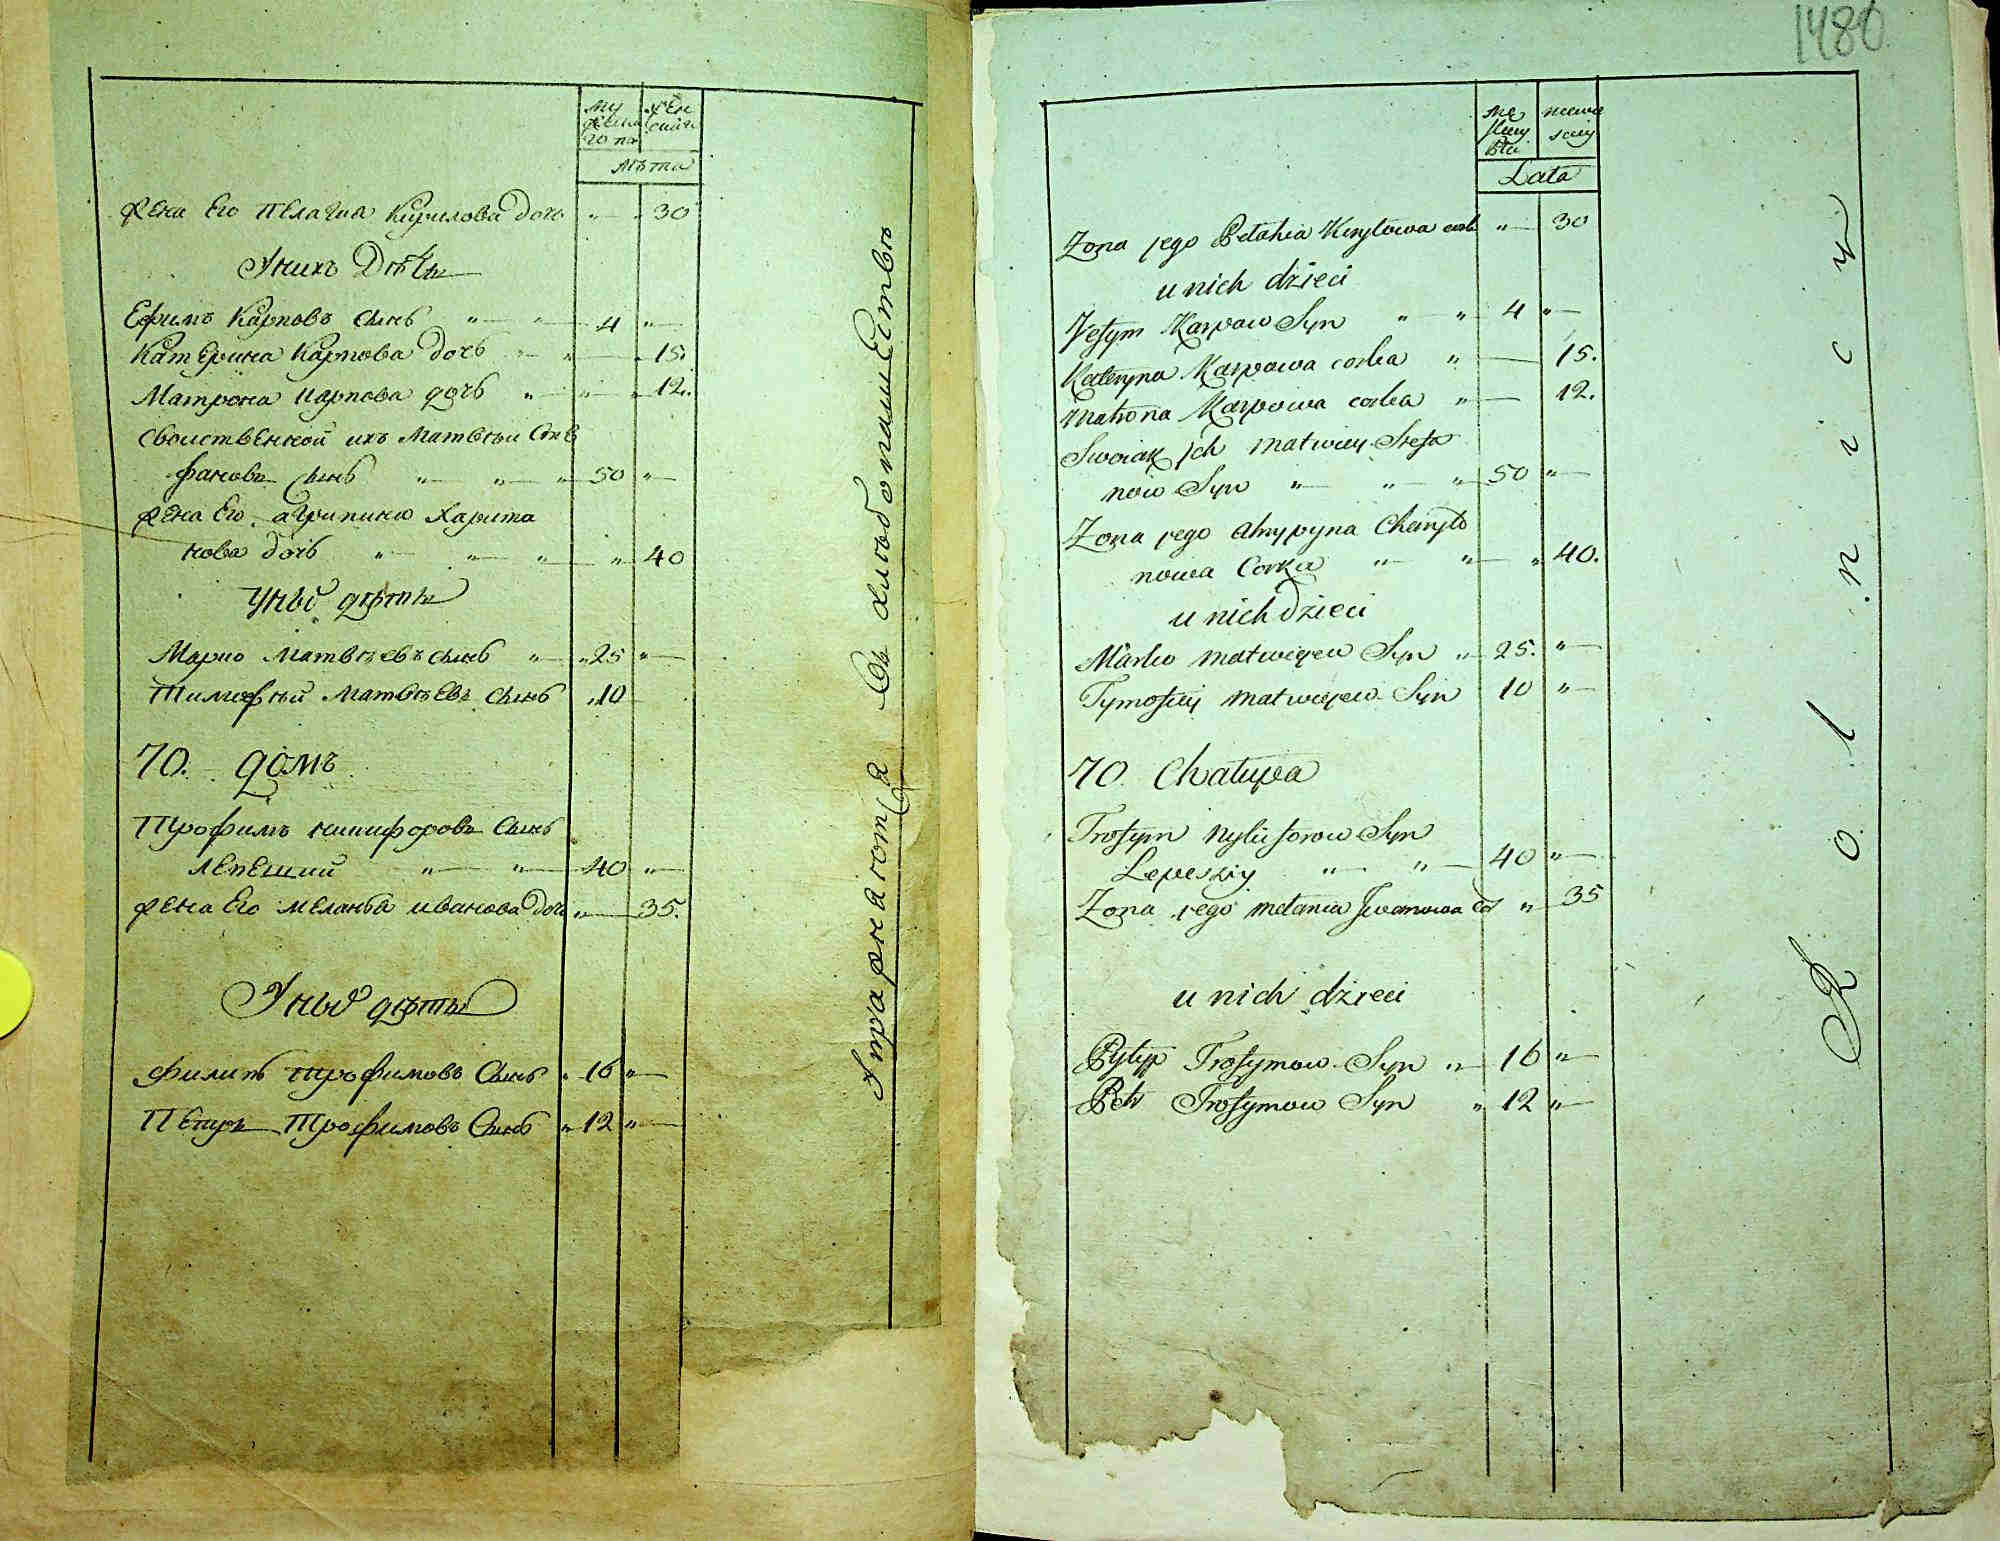 му жеска го по
жен ский
лѣта
жена Его пелагиа Кирилова дочь " — " 30
Уних Дѣти
Ефимъ Карповъ сынъ " — " — 4 " —
Катерина Карпова дочь " — " — 15.
Матрона Карпова дочь " — " — " 12.
свойственной ихъ Матвѣй Сте
фановъ сынъ " — " — " 50 " —
жена Его агрипина Харита
нова дочь " — " — " — " 40
Уныхъ дѣти
Марко Матвѣевъ сынъ " — " 25 " —
Тимофѣй Матвѣевъ сынъ " 10
70. домъ
Трофимъ никифоровъ сынъ
лепеший " — " — 40 " —
жена Его меланья иванова дочь " — 35.
Уныхъ дѣти
филипъ трофимовъ сынъ " 16 " —
Петръ Трофимовъ сынъ " 12 " —
Упражняются въ хлѣбопашествѣ
1480
mę skiey płci
niewie sciey
Lata
Zona jego Pelahia Kirylowa corka " — 30
u nich dzieci
Jefym Karpow Syn " — " 4 " —
Kateryna Karpowa corka " — 15.
Matrona Karpowa corka " — 12.
Swoiak ich Matwiey Stefa
now Syn " — " — " 50 " —
Zona jego Ahrypyna Charyto
nowa Corka " — " — " 40.
u nich dzieci
Marko Matwiejew Syn " — 25. " —
Tymofiiy Matwiejew Syn 10 " —
70. Chatupa
Trofym Nykiforow Syn
Lepesziy " — " — 40 " —
Zona jego Melania Jwanowa Co " — 35
u nich dzieci
Pylyp Trofymow Syn " — 16 " —
Petr Trofymow Syn " 12 " —
Rolnicy